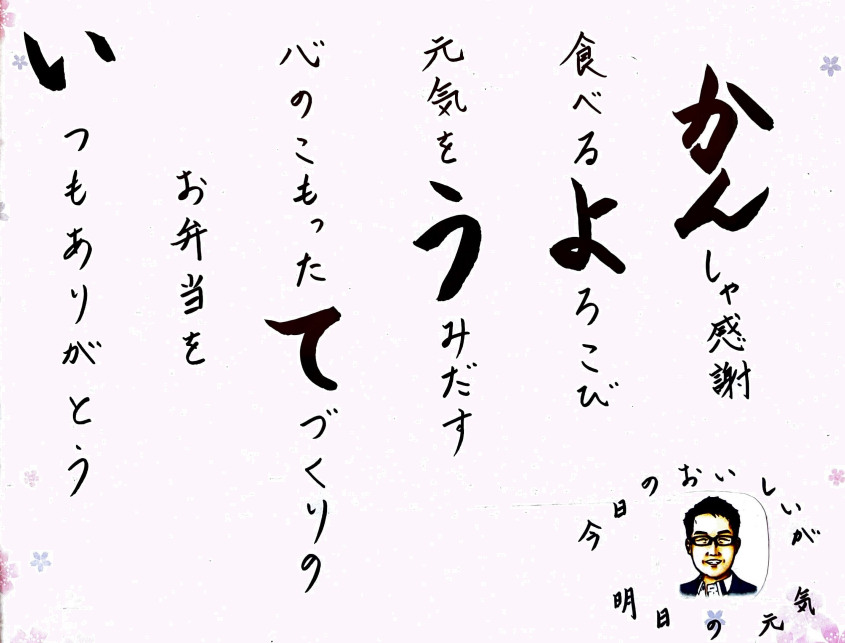 かんしゃ感謝
食べるよろこび
元気をうみだす
心のこもったてづくりの
お弁当を
いつもありがとう
今日のおいしいが
明日の元気